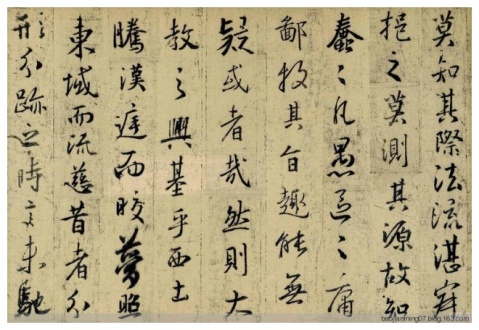 莫知其際法流湛寂
挹之莫測其源故知
蠢々凡愚區々庸
鄙投其旨趣能無
疑或者哉然則大
教之興基乎西土
騰漢庭而皎夢照
東域而流慈昔者分
形分跡之時言未馳
babyjianming07.blog.163.com